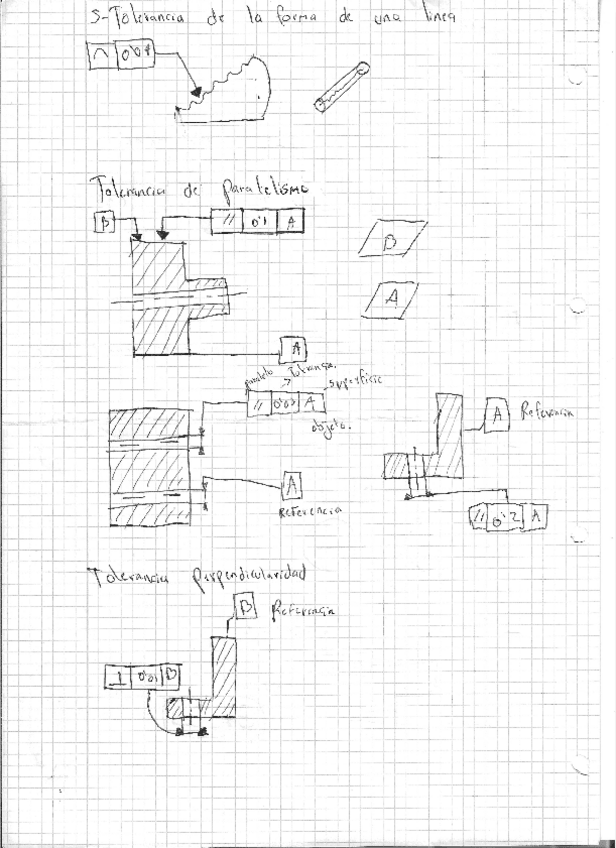 5-Tolerancia de la forma de una linea
⌒ 0'04
Tolerancia de paralelismo
B
// 0'1 A
B
A
A
paralelo Tolerancia. superficie
// 0'02 A
objeto.
A Referencia
A
Referencia
// 0'2 A
Tolerancia perpendicularidad
B Referencia
⊥ 0'01 B